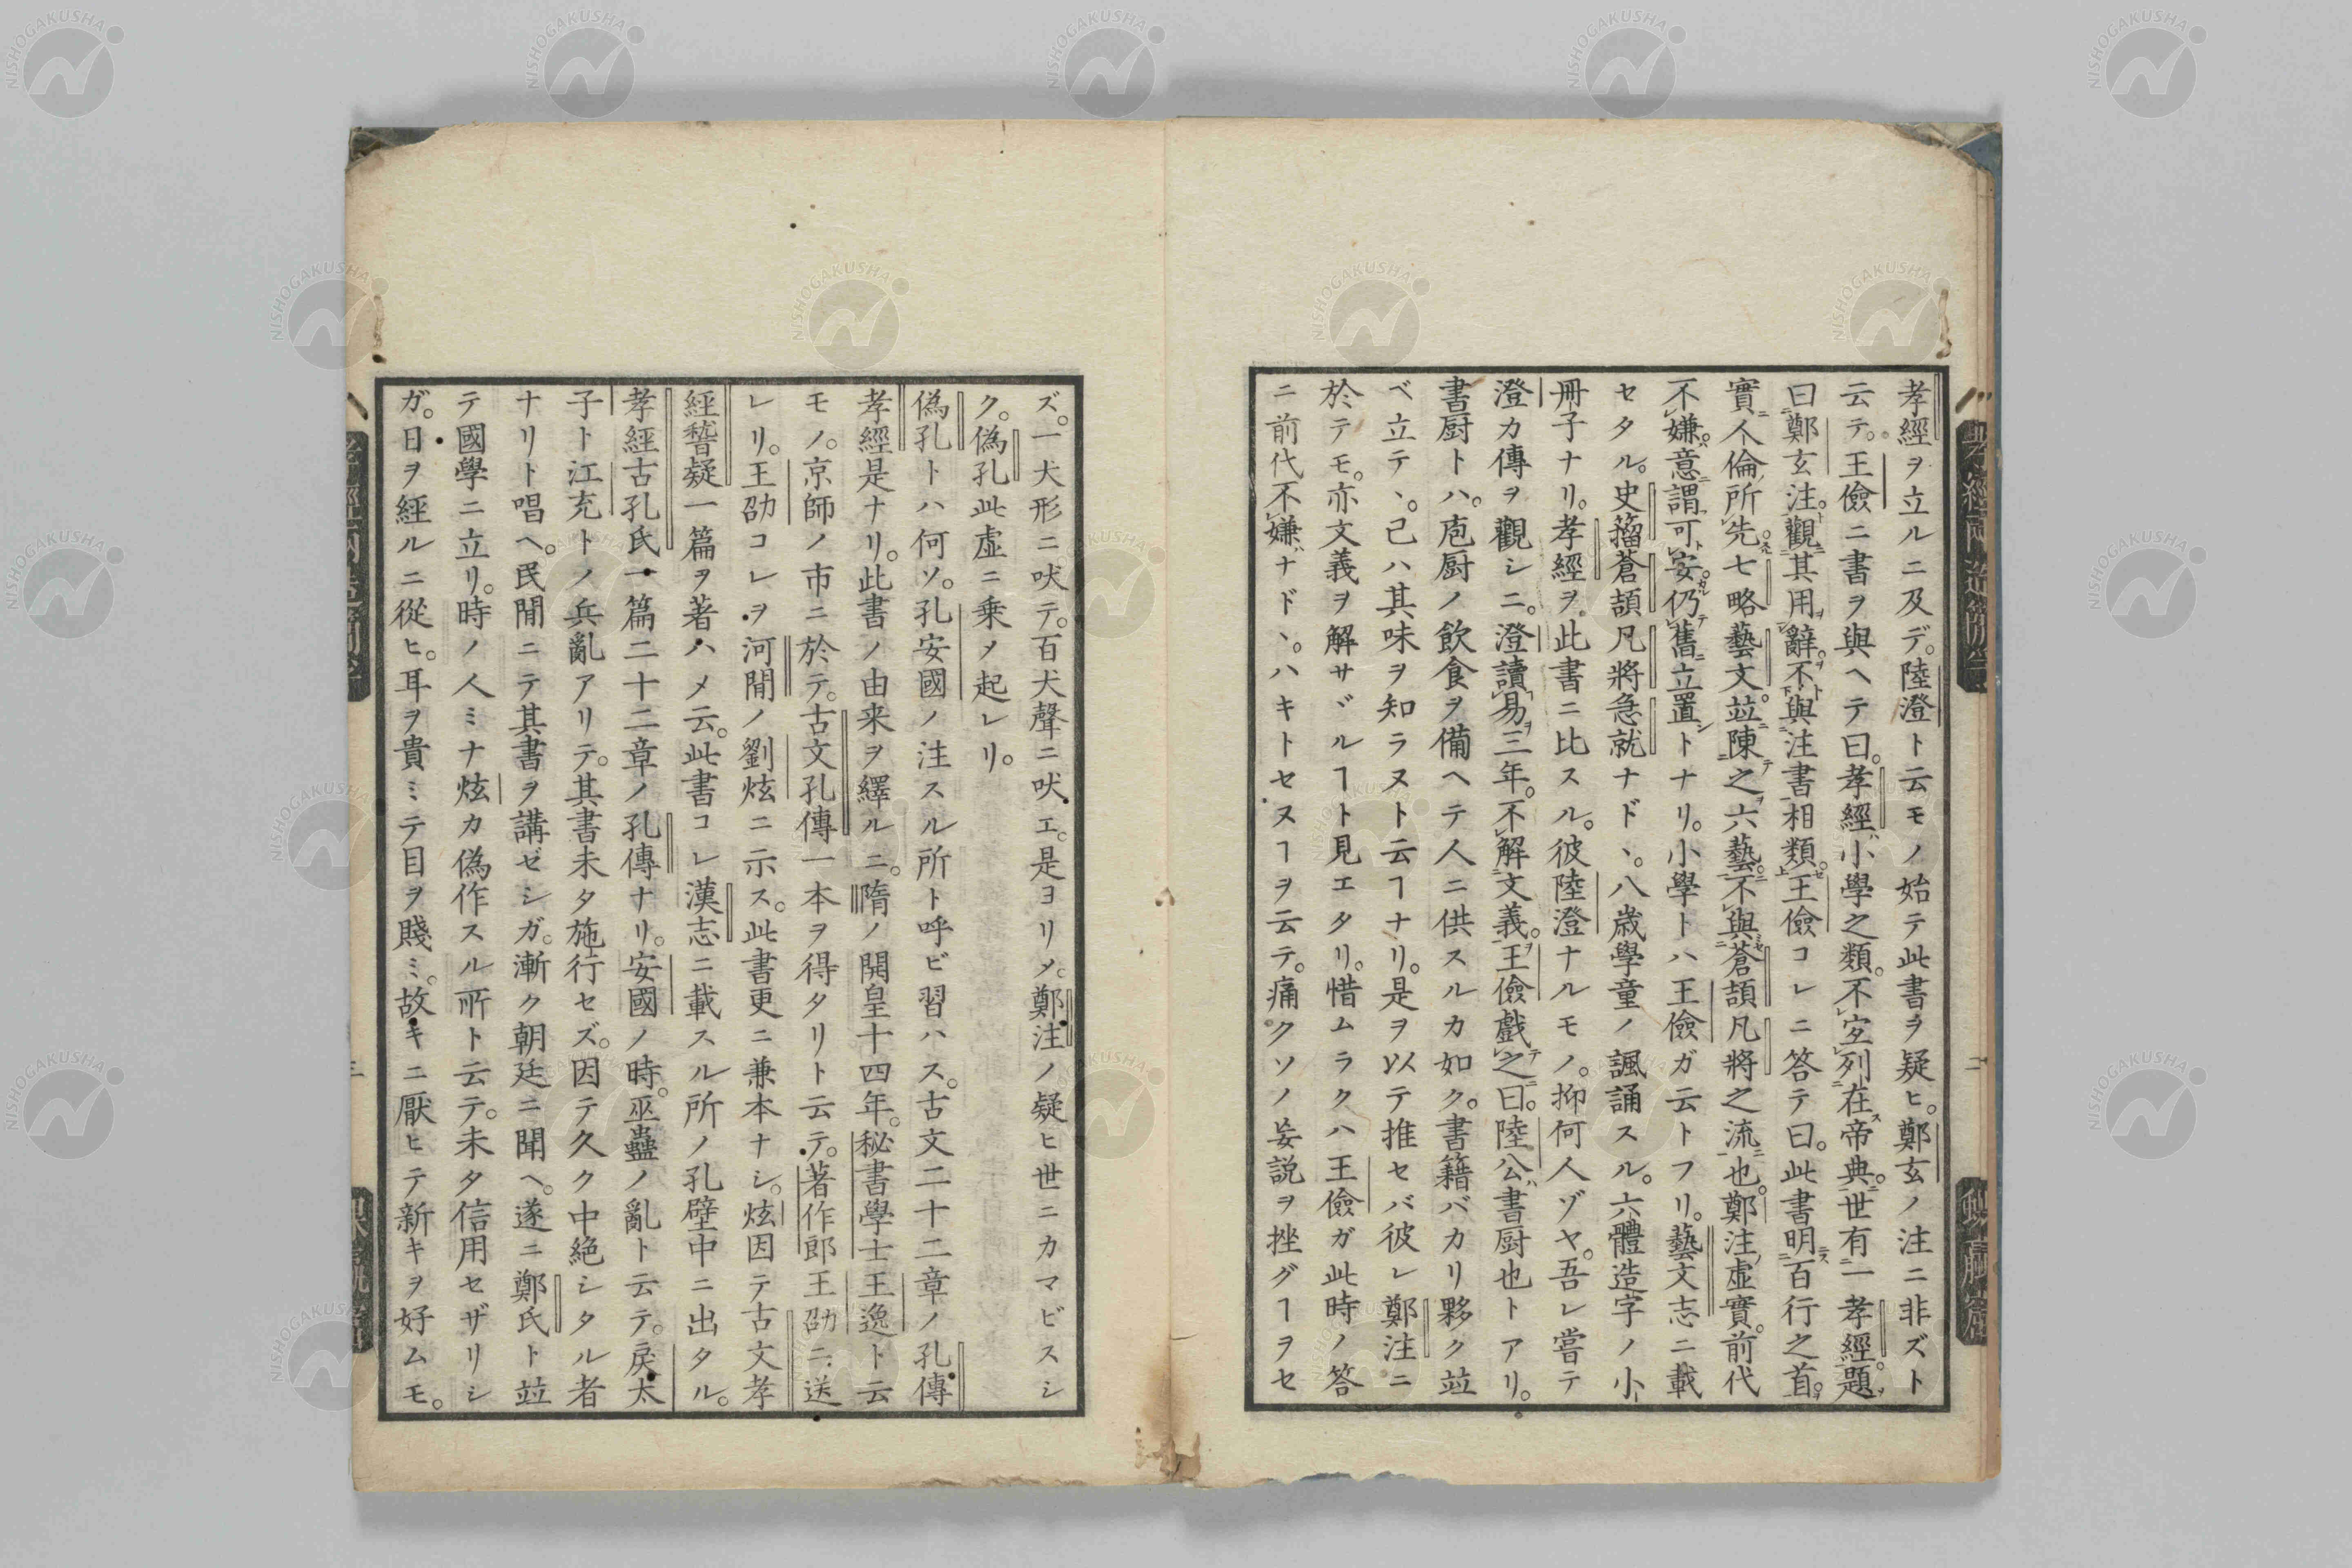 孝經ヲ立ルニ及デ。陸澄ト云モノ始テ此書ヲ疑ヒ。鄭玄ノ注ニ非ズト
云テ。王儉ニ書ヲ與ヘテ曰。孝經ハ小學之類。不宜列在帝典。世有一孝經。題
曰鄭玄注。觀其用辭。不與注書相類。王儉コレニ答テ曰。此書明百行之首。
實人倫所先。七略藝文。竝陳之六藝。不與蒼頡凡將之流也。鄭注虛實。前代
不嫌。意謂可安。仍舊立置トナリ。小學トハ王儉ガ云トフリ。藝文志ニ載
セタル。史籀蒼頡凡將急就ナド丶。八歳學童ノ諷誦スル。六體造字ノ小
冊子ナリ。孝經ヲ。此書ニ比スル。彼陸澄ナルモノ。抑何人ゾヤ。吾レ嘗テ
澄カ傳ヲ觀シニ。澄讀易三年。不解文義。王儉戲之曰。陸公書厨也トアリ。
書厨トハ。庖厨ノ飲食ヲ備ヘテ人ニ供スルカ如ク。書籍バカリ夥ク竝
ベ立テ丶。己ハ其味ヲ知ラヌト云ヿナリ。是ヲ以テ推セバ彼レ鄭注ニ
於テモ。亦文義ヲ解サヾルヿト見エタリ。惜ムラクハ王儉ガ此時ノ答
ニ前代不嫌ナド丶。ハキトセヌヿヲ云テ。痛クソノ妄説ヲ挫グヿヲセ
ズ。一犬形ニ吠テ。百犬聲ニ吠エ。是ヨリ〆。鄭注ノ疑ヒ世ニカマビスシ
ク。偽孔此虛ニ乗〆起レリ。
偽孔トハ何ソ。孔安國ノ注スル所ト呼ビ習ハス。古文二十二章ノ孔傳
孝經是ナリ。此書ノ由来ヲ繹ルニ。隋ノ開皇十四年。秘書學士王逸ト云
モノ。京師ノ市ニ於テ。古文孔傳一本ヲ得タリト云テ。著作郎王劭ニ送
レリ。王劭コレヲ河間ノ劉炫ニ示ス。此書更ニ兼本ナシ。炫因テ古文孝
經稽疑一篇ヲ著ハ〆云。此書コレ漢志ニ載スル所ノ孔壁中ニ出タル。
孝經古孔氏一篇二十二章ノ孔傳ナリ。安國ノ時。巫蠱ノ亂ト云テ。戾太
子ト江充トノ兵亂アリテ。其書未タ施行セズ。因テ久ク中絶シタル者
ナリト唱ヘ。民間ニテ其書ヲ講ゼシガ。漸ク朝廷ニ聞ヘ。遂ニ鄭氏ト竝
テ國學ニ立リ。時ノ人ミナ炫カ偽作スル所ト云テ。未タ信用セザリシ
ガ。日ヲ經ルニ從ヒ。耳ヲ貴ミテ目ヲ賤ミ。故キニ厭ヒテ新キヲ好ムモ。